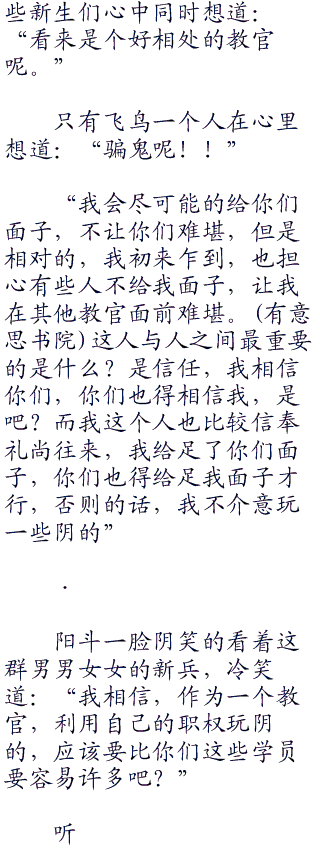 些新生们心中同时想道：
“看来是个好相处的教官
呢。”
只有飞鸟一个人在心里
想道：“骗鬼呢！！”
“我会尽可能的给你们
面子，不让你们难堪，但是
相对的，我初来乍到，也担
心有些人不给我面子，让我
在其他教官面前难堪。(有意
思书院)这人与人之间最重要
的是什么？是信任，我相信
你们，你们也得相信我，是
吧？而我这个人也比较信奉
礼尚往来，我给足了你们面
子，你们也得给足我面子才
行，否则的话，我不介意玩
一些阴的”
.
阳斗一脸阴笑的看着这
群男男女女的新兵，冷笑
道：“我相信，作为一个教
官，利用自己的职权玩阴
的，应该要比你们这些学员
要容易许多吧？”
听